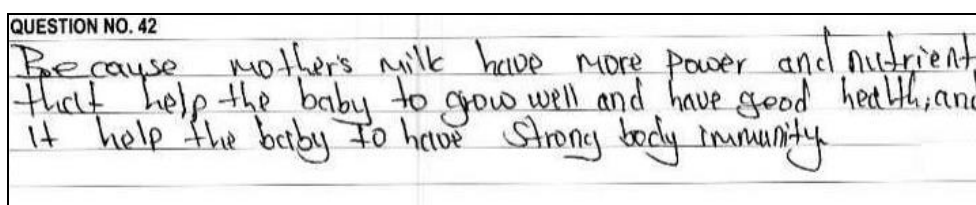 QUESTION NO. 42
Because mother's milk have more power and nutrient
that help the baby to grow well and have good health, and
it help the baby to have strong body immunity